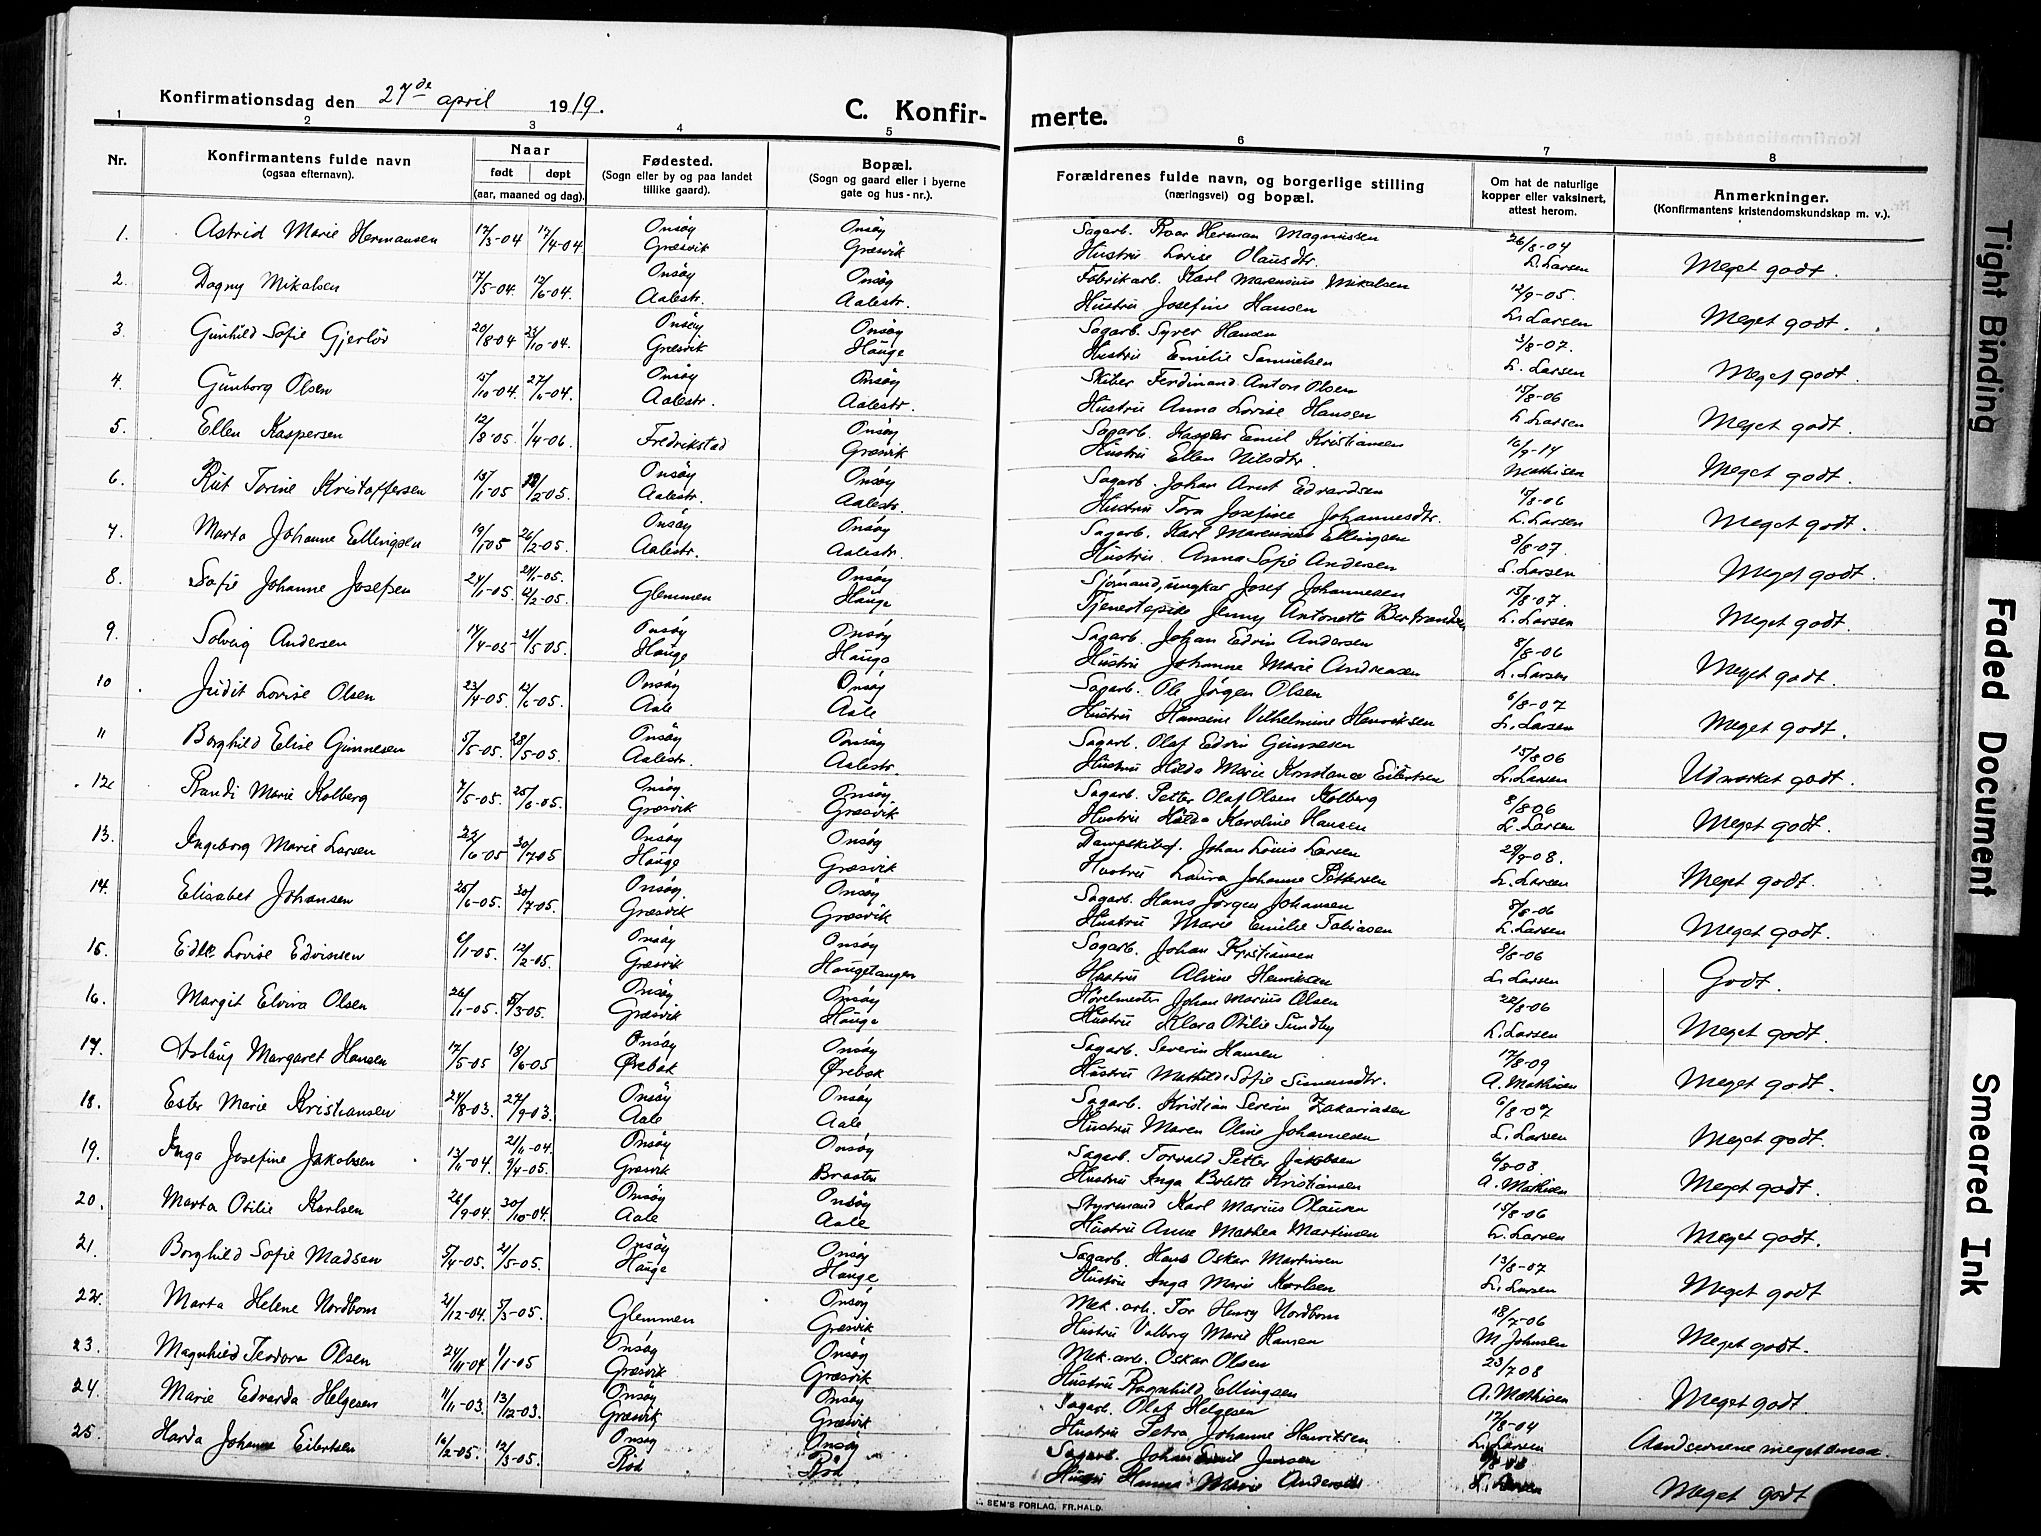 Konfirmationsdag den 27de april 1919.
C. Konfir-
merte.
1 2 3 4 5 6 7 8
Nr.
Konfirmantens fulde navn
(ogsaa efternavn).
Naar
født døpt
(aar, maaned og dag).
Fødested.
(Sogn eller by og paa landet
tillike gaard).
Bopæl.
(Sogn og gaard eller i byerne
gate og hus-nr.).
Forældrenes fulde navn, og borgerlige stilling
(næringsvei) og bopæl.
Om hat de naturlige
kopper eller vaksinert,
attest herom.
Anmerkninger.
(Konfirmantens kristendomskundskap m. v.).
1. Astrid Marie Hermansen 12/3-04 17/4-04 Onsøy Græsvik Onsøy Græsvik Sagarb. Roar Herman Magnussen 26/8-04
Hustru Lovise Olausdtr. L. Larsen Meget godt.
2. Dagny Mikalsen 17/5-04. 12/6-04. Onsøy Aalestr. Onsøy Aalestr. Fabrikarb. Karl Marensius Mikalsen 12/9-05.
Hustru Josefine Hansen L. Larsen Meget godt.
3. Gunhild Sofie Gjerløv 20/8-04 23/10-04. Onsøy Græsvik Onsøy Hauge Sagarb. Syver Hansen 3/8-07.
Hustru Emilie Samuelsen L. Larsen Meget godt.
4. Gunborg Olsen 15/10-04 27/11-04. Onsøy Aalestr. Onsøy Aalestr. Skiber Ferdinand Anton Olsen 15/8-06
Hustru Anna Lovise Hansen L. Larsen Meget godt.
5. Ellen Kaspersen 12/8-05. 1/4-06. Fredrikstad Onsøy Græsvik Sagarb. Kasper Emil Kristiansen 16/9-14
Hustru Ellen Nilsdtr. Mathisen Meget godt.
6. Rut Torine Kristoffersen 15/1-05 Onsøy Aalestr. Onsøy Aalestr. Sagarb. Johan Arnt Edvardsen 17/8-06
Hustru Tora Josefine Johannesdtr. L. Larsen Meget godt.
7. Marta Johanne Ellingsen 19/1-05 26/2-05. Onsøy Aalestr. Onsøy Aalestr. Sagarb. Karl Marensius Ellingsen 8/8-07.
Hustru Anna Sofie Andersen L. Larsen Meget godt.
8. Sofie Johanne Josefsen 24/1-05. 29/1-05. 12/2-05. Glemmen Onsøy Hauge Sjømand, ungkar Josef Johannesen 15/8-07.
Tjenestepike Jenny Antonette Bertrandsen L. Larsen Meget godt.
9. Solveig Andersen 17/4-05 21/5-05. Onsøy Hauge Onsøy Hauge Sagarb. Johan Edvin Andersen 8/8-06
Hustru Johanne Marie Andreasen L. Larsen Meget godt.
10. Judit Lovise Olsen 23/4-05. 12/6-05. Onsøy Aale Onsøy Aale Sagarb. Ole Jørgen Olsen 6/8-07
Hustru Hansine Vilhelmine Henriksen L. Larsen Meget godt.
11 Borghild Elise Gunnesen 5/5-05. 28/5-05. Onsøy Aalestr. Onsøy Aalestr. Sagarb. Olaf Edvin Gunnesen 15/8 06
Hustru Hilda Marie Konstance Eilertsen L. Larsen Udmerket godt.
12. Randi Marie Kolberg 7/5-05. 25/6-05. Onsøy Græsvik Onsøy Græsvik Sagarb. Petter Olaf Olsen Kolberg 8/8 06
Hustru Hilda Karoline Hansen L. Larsen Meget godt.
13. Ingeborg Marie Larsen 22/6-05 30/7 05 Onsøy Hauge Onsøy Græsvik Dampskibsf. Johan Louis Larsen 29/9-08.
Hustru Laura Johanne Pettersen L. Larsen Meget godt.
14. Elisabet Johansen 25/6-05. 30/7-05. Onsøy Græsvik Onsøy Græsvik Sagarb. Hans Jørgen Johansen 8/8-06
Hustru Marie Emilie Tobiasen L. Larsen Meget godt.
15. Edle Lovise Edvinsen 6/1-05. 12/2-05. Onsøy Græsvik Onsøy Haugetangen Sagarb. Johan Kristiansen 8/8-06
Hustru Alvine Henriksen L. Larsen Godt.
16. Margit Elvira Olsen 26/1-05. 5/3-05. Onsøy Græsvik Onsøy Hauge Høvelmester Johan Marius Olsen 22/8-06
Hustru Klara Otilie Sundby L. Larsen Meget godt.
17. Aslaug Margaret Hansen 17/5-05 18/6-05 Onsøy Ørebæk Onsøy Ørebæk Sagarb. Severin Hansen 17/8-09
Hustru Mathilde Sofie Simensdtr. A. Mathisen Meget godt.
18. Ester Marie Kristiansen 24/8-03. 27/9-03. Onsøy Aale Onsøy Aale Sagarb. Kristian Severin Zakariasen 6/8-07
Hustru Maren Oline Johannesen L. Larsen Meget godt.
19. Inga Josefine Jakobsen 13/11-04 21/11-04. 2/4-05. Onsøy Græsvik Onsøy Braaten Sagarb. Torvald Petter Jakobsen 6/8-08.
Hustru Inga Bolette Kristiansen A. Mathisen Meget godt.
20. Marta Otilie Karlsen 26/9-04. 30/10-04. Onsøy Aale Onsøy Aale Styrmand Karl Marius Olausen 15/8-06
Hustru Anne Mathea Martinsen L. Larsen Meget godt.
21. Borghild Sofie Madsen 5/4-05. 21/5-05. Onsøy Hauge Onsøy Hauge Sagarb. Hans Oskar Martinsen 13/8-07
Hustru Inga Marie Karlsen L. Larsen Meget godt
22. Marta Helene Nordbom 21/12-04. 5/3-05. Glemmen Onsøy Græsvik Mek. arb. Tor Henry Nordbom 18/7-06
Hustru Valborg Marie Hansen M Johnsen Meget godt.
23. Magnhild Teodora Olsen 24/11-04 1/1-05 Onsøy Græsvik Onsøy Græsvik Mek. arb. Oskar Olsen 23/7 08
Hustru Ragnhild Ellingsen A. Mathisen Meget godt.
24. Marie Edvarda Helgesen 11/11-03. 13/12-03. Onsøy Græsvik Onsøy Græsvik Sagarb. Olaf Helgesen 17/8-04
Hustru Petra Johanne Henriksen L. Larsen Aandsevnene meget smaa.
25. Harda Johanne Eilertsen 16/2-05. 12/3-05. Onsøy Rød Onsøy Rød Sagarb. Johan Emil Jensen
Hustru Hanna Marie Andersen L. Larsen Meget godt
SEM'S FORLAG, FR.HALD.
Tight Binding
Faded Document
Smeared Ink